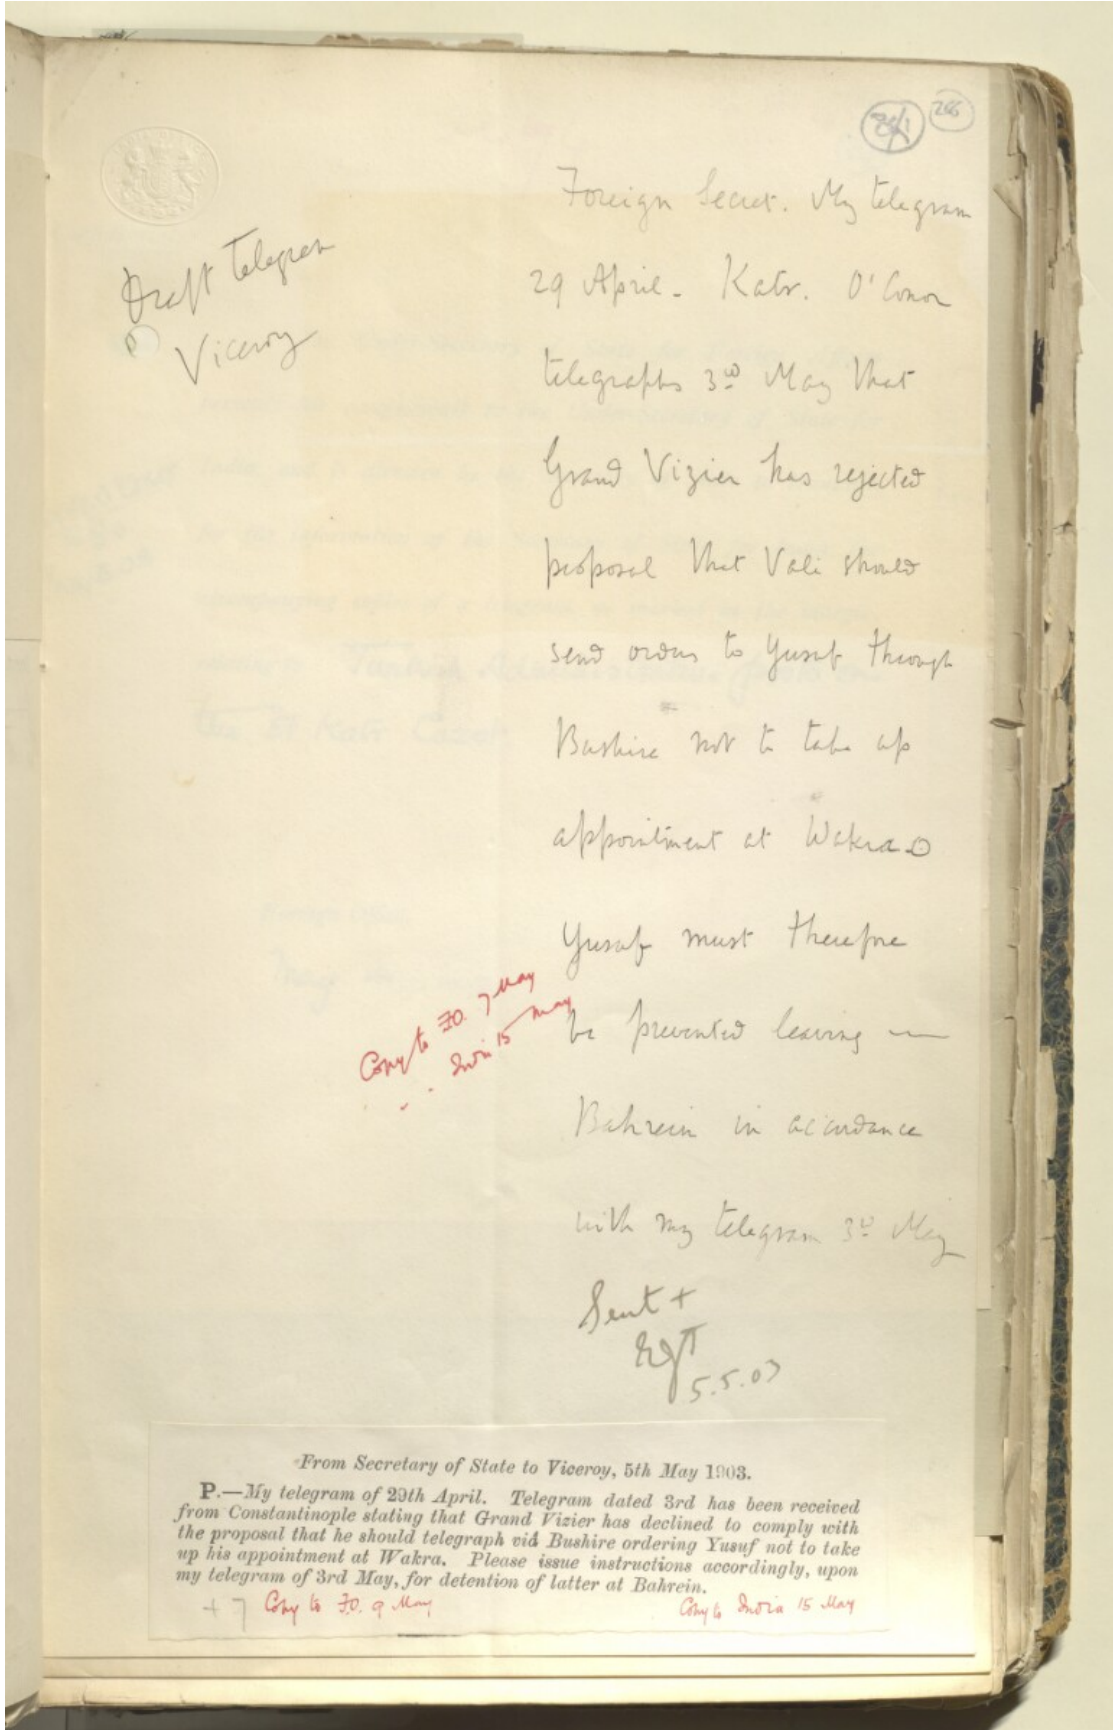 266
Draft Telegram
Viceroy
Foreign Secret. My telegram
29 April. Katr. O'Conor
telegraphs 3rd May that
Grand Vizier has rejected
proposal that Vali should
send orders to Yusuf through
Bushire not to take up
appointment at Wakra
Yusuf must therefore
be prevented leaving
Bahrein in accordance
with my telegram 3rd May
Copy to F.O. 7 May
India 15 May
Sent +
5.5.03
From Secretary of State to Viceroy, 5th May 1903.
P.—My telegram of 29th April. Telegram dated 3rd has been received
from Constantinople stating that Grand Vizier has declined to comply with
the proposal that he should telegraph viâ Bushire ordering Yusuf not to take
up his appointment at Wakra. Please issue instructions accordingly, upon
my telegram of 3rd May, for detention of latter at Bahrein.
+ 7 Copy to F.O. 9 May
Copy to India 15 May